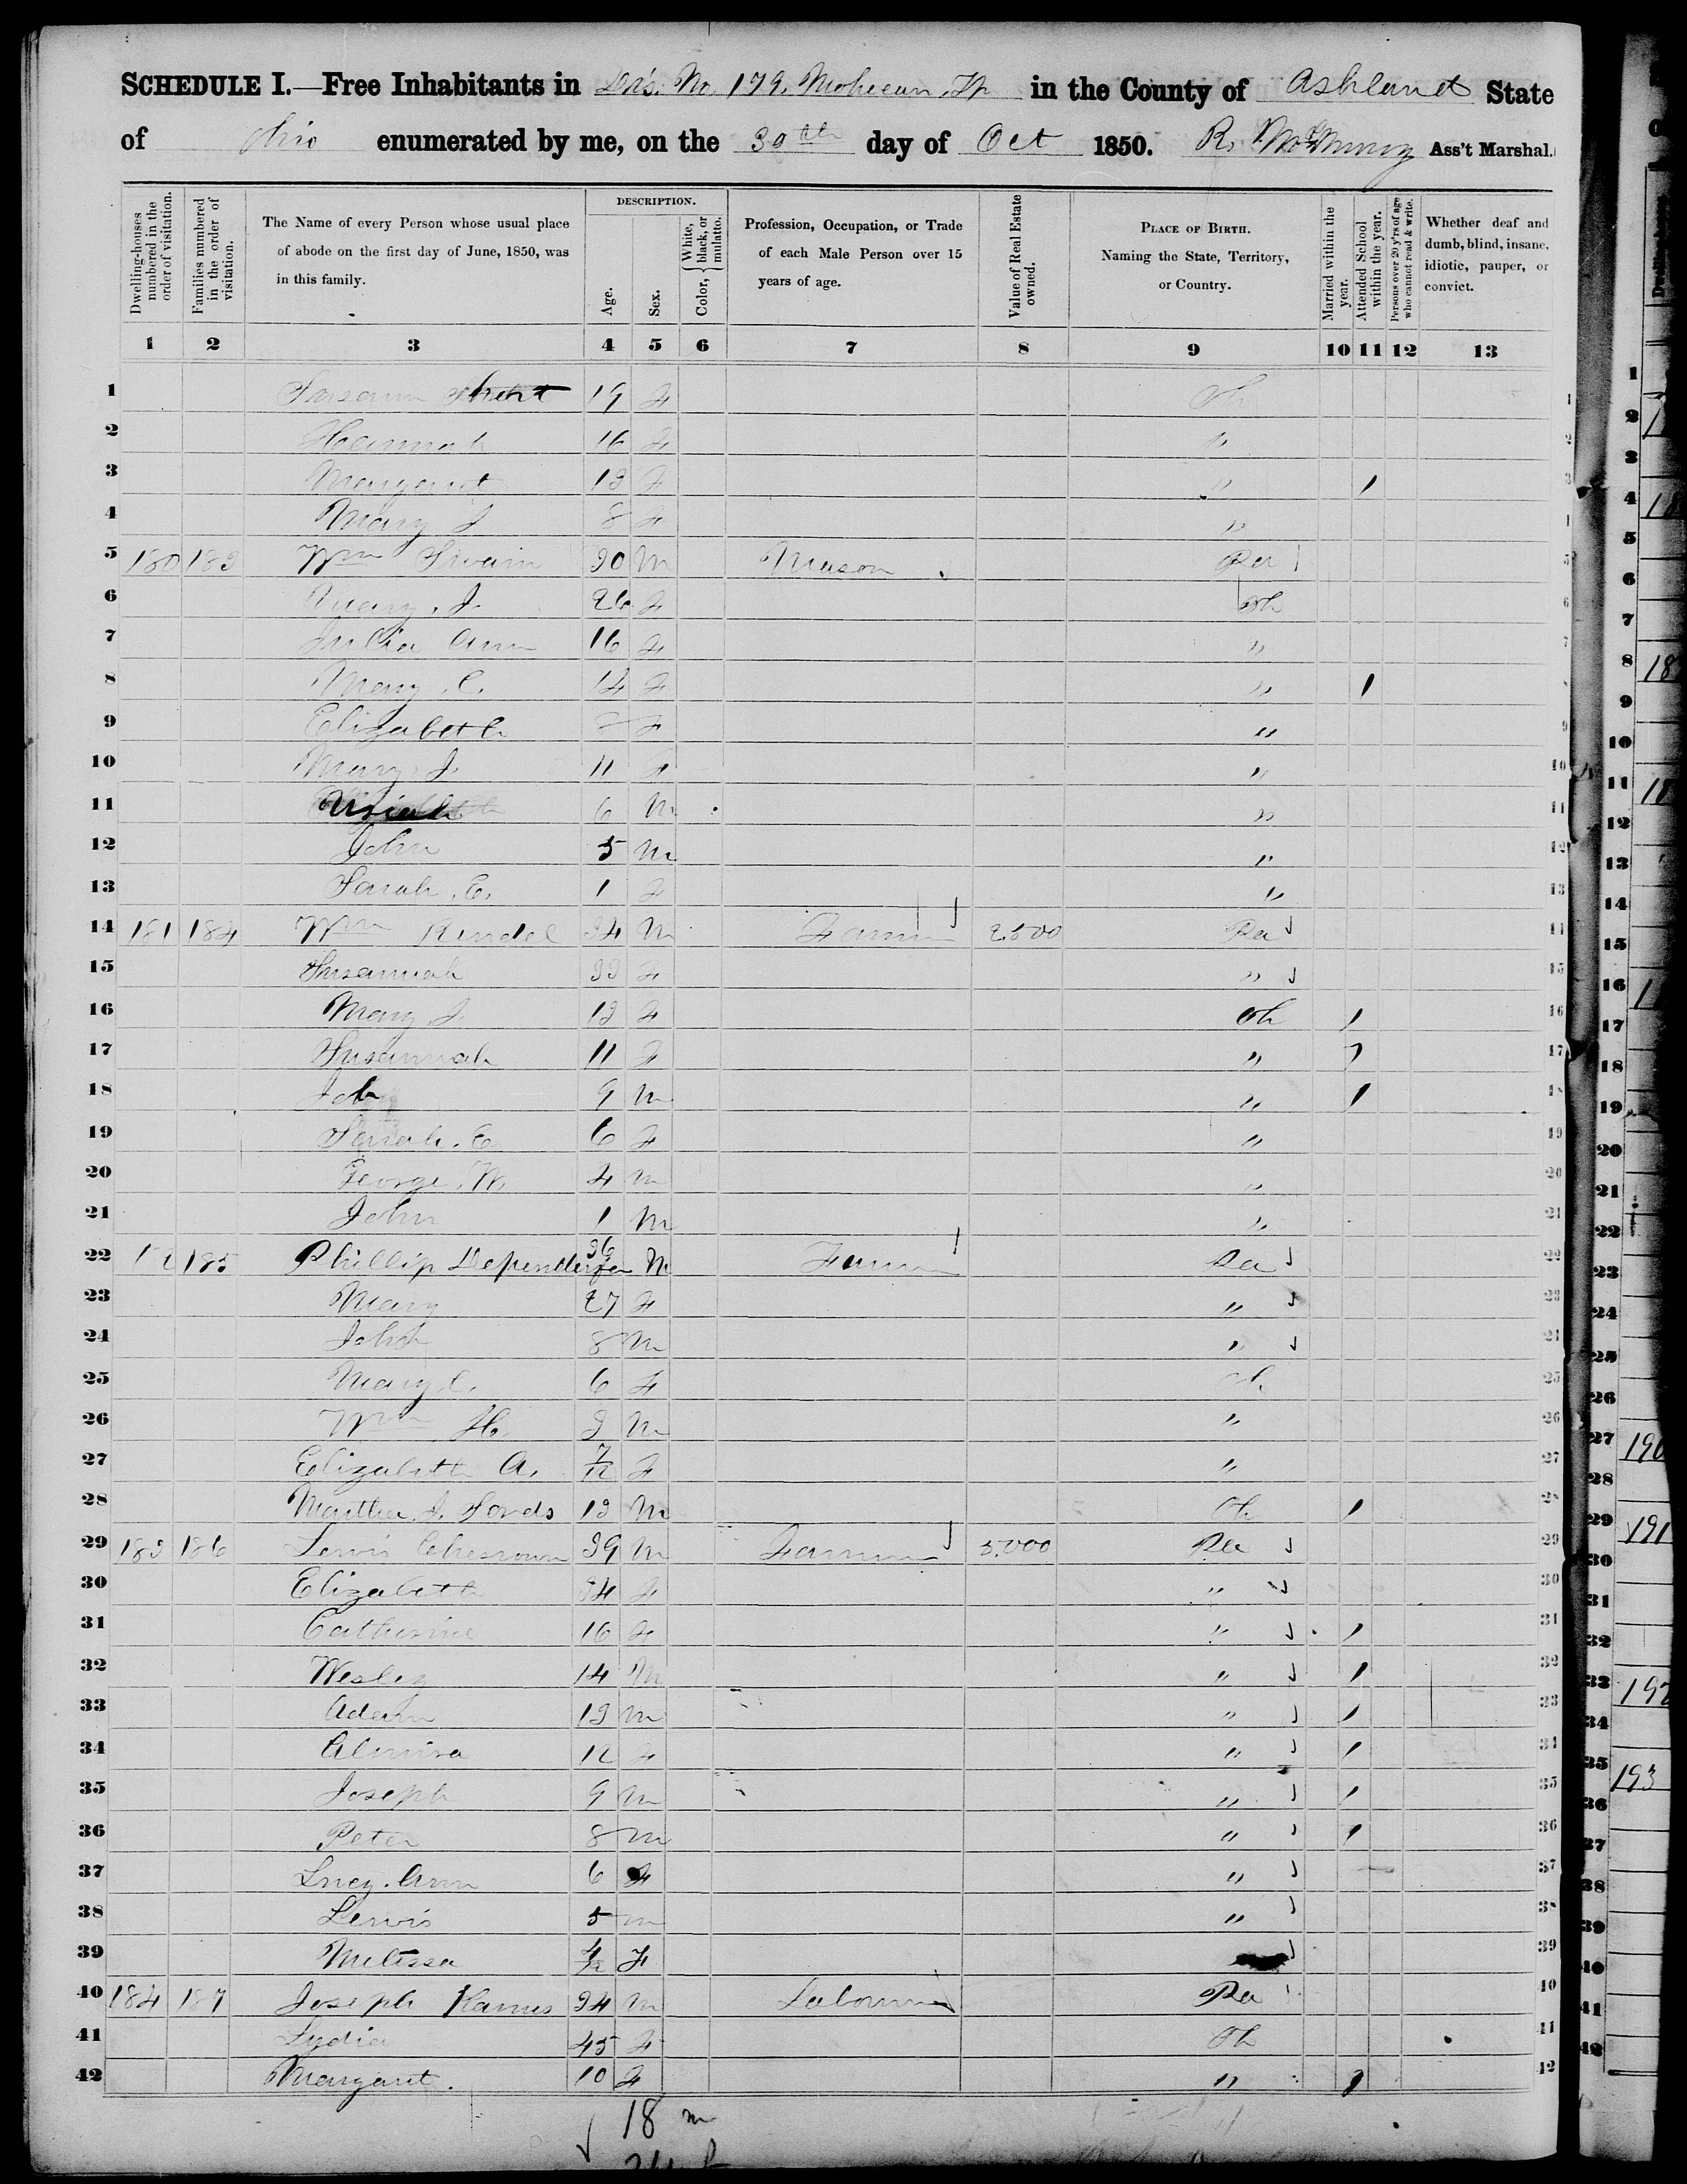 SCHEDULE I.—Free Inhabitants in Dis. No. 179. Mohecan. Tp in the County of Ashland State
of Ohio enumerated by me, on the 30th day of Oct 1850. R. Ass't Marshal.
Dwelling-houses numbered in the order of visitation.
Families numbered in the order of visitation.
The Name of every Person whose usual place of abode on the first day of June, 1850, was in this family.
DESCRIPTION.
Age.
Sex.
Color, { White, black, or mulatto.
Profession, Occupation, or Trade of each Male Person over 15 years of age.
Value of Real Estate owned.
PLACE OF BIRTH. Naming the State, Territory, or Country.
Married within the year.
Attended School within the year.
Persons over 20 y'rs of age who cannot read & write.
Whether deaf and dumb, blind, insane, idiotic, pauper, or convict.
1 2 3 4 5 6 7 8 9 10 11 12 13
1 19 F Oh 1
2 Hannah 16 F " 2
3 Margaret 13 F " 1 3
4 Mary J 8 F "
5 180 183 Wm Swain 30 M Mason Pa 5
6 Mary. J. 26 F Oh 6
7 Julia Ann 16 F " 7
8 Mary. C. 14 F " 1
9 Elizabeth F " 9
10 Mary J. 11 F " 10
11 Uriah 6 M " 11
12 John 5 M " 12
13 Sarah. E. 1 F " 13
14 181 184 Wm Rendel 34 M Farmer 2.500 Pa
15 Susannah 33 F " 15
16 Mary J 13 F Oh 1 16
17 Susannah 11 F " 1 17
18 Job 9 M " 1
19 Sarah. E 6 F " 19
20 George. W. 4 M " 20
21 John 1 M " 21
22 185 Phillip Dependerfer 36 M Farmer Pa 22
23 Mary 27 F " 23
24 John 8 M " 24
25 Mary C. 6 F Oh. 25
26 Wm H. 3 M " 26
27 Elizabeth A. 7/12 F " 27
28 Martha. J. Fords 13 M Oh 1
29 183 186 Lewis Chesrown 39 M Farmer 5.000 Pa 29
30 Elizabeth 34 F " 30
31 Catherine 16 F " 1 31
32 Wesley 14 M " 1 32
33 Adam 13 M " 1
34 Almira 12 F " 1 34
35 Joseph 9 M " 1 35
36 Peter 8 M " 1 36
37 Lucy. Ann 6 F " 37
38 Lewis 5 M "
39 Melissa 4/12 F 39
40 184 187 Joseph 34 M Labourer Pa 40
41 Lydia 45 F Oh 41
42 Margaret. 10 F " 1 42
18 m